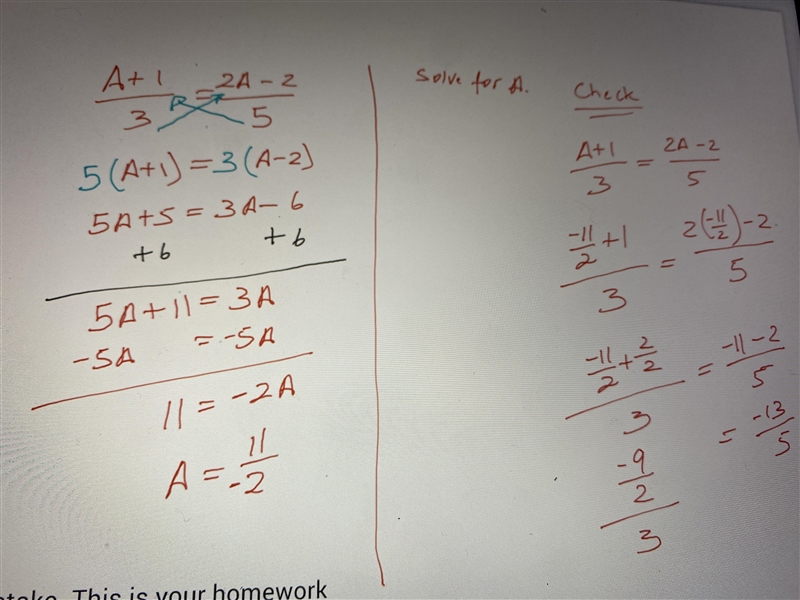 A+1/3 = 2A-2/5
5(A+1) = 3(A-2)
5A+5 = 3A-6
+6 +6
5A+11 = 3A
-5A = -5A
11 = -2A
A = 11/-2
Solve for A.
Check
A+1/3 = 2A-2/5
-11/2+1/3 = 2(-11/2)-2/5
-11/2+2/2/3 = -11-2/5
-9/2/3 = -13/5
This is your homework